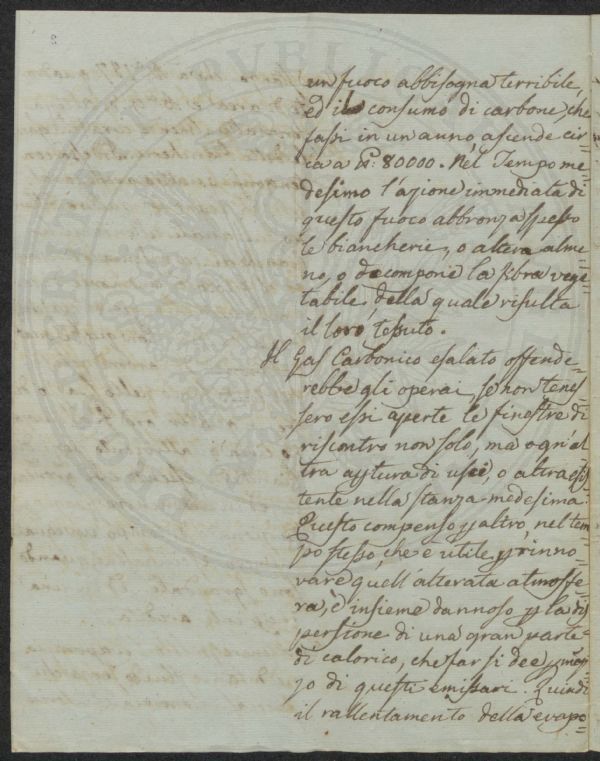 un fuoco abbisogna terribile,
ed il consumo di carbone, che
fassi in un anno, ascende cir=
ca a 80000. Nel Tempo me=
desimo l'azione immediata di
questo fuoco abbronza spesso
le biancherie, o altera alme=
no, o decompone la fibra vege=
tabile, della quale risulta
il loro tessuto.
Il Gas Carbonico esalato offende=
rebbe gli operai, se non tenes=
sero essi aperte le finestre di
riscontro non solo, ma ogni al=
tra apertura di uscì, o altra esi=
stente nella stanza medesima.
Questo compenso p altro, nel tem=
po stesso, che è utile p rinno=
vare quell'alterata atmosfe=
ra, è insieme dannoso p la di=
spersione di una gran parte
di calorico, che far si dee p mez=
zo di questi emissari. Quindi
il rallentamento della evapo=